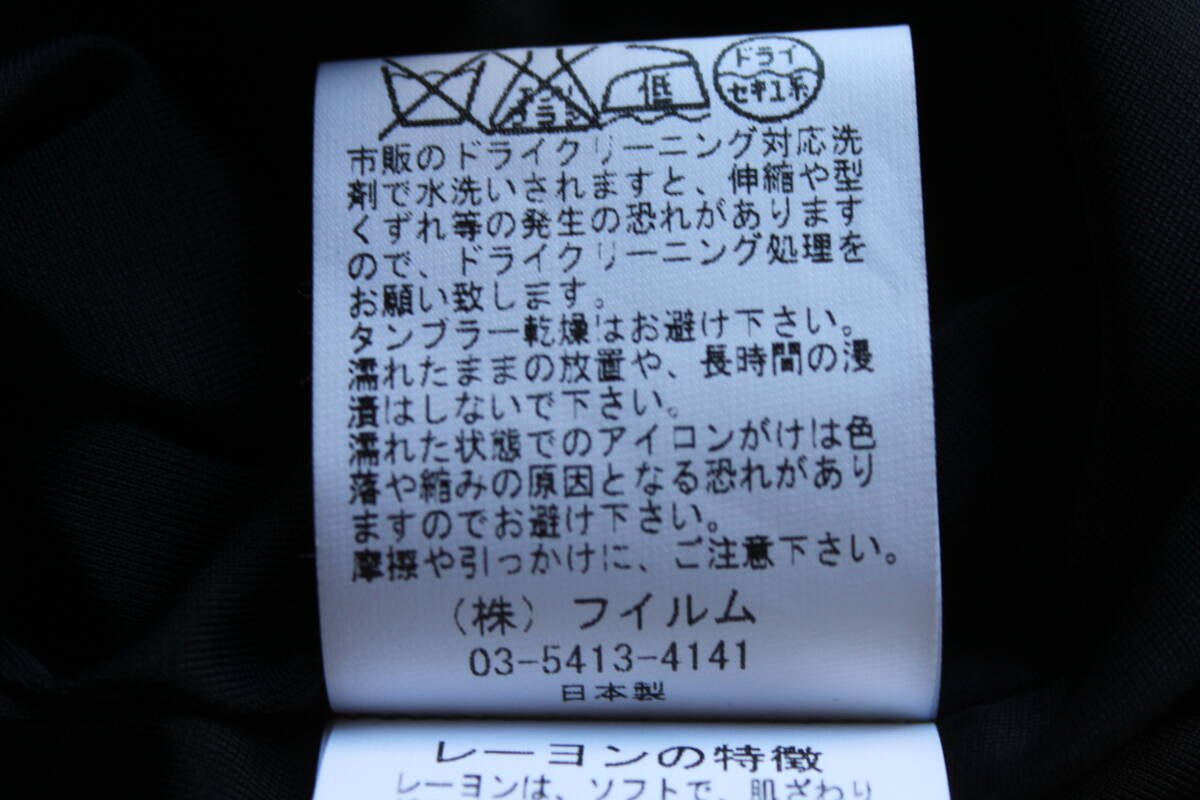 エンソ
サラシ
低
ドライ
セキユ系
市販のドライクリーニング対応洗
剤で水洗いされますと、伸縮や型
くずれ等の発生の恐れがあります
ので、ドライクリーニング処理を
お願い致します。
タンブラー乾燥はお避け下さい。
濡れたままの放置や、長時間の浸
漬はしないで下さい。
濡れた状態でのアイロンがけは色
落や縮みの原因となる恐れがあり
ますのでお避け下さい。
摩擦や引っかけに、ご注意下さい。
（株）フイルム
03-5413-4141
日本製
レーヨンの特徴
レーヨンは、ソフトで、肌ざわり